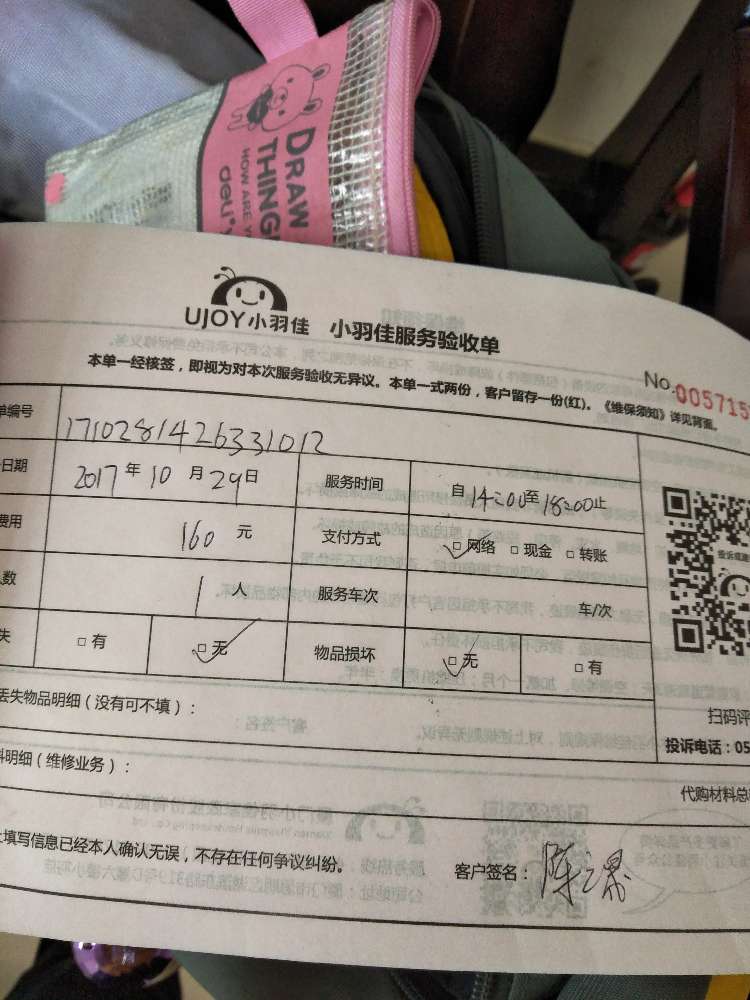 DRAW
THING
HOW ARE Y
deli
UJOY小羽佳 小羽佳服务验收单
本单一经核签，即视为对本次服务验收无异议。本单一式两份，客户留存一份(红)。《维保须知》详见背面。
No.005715
单编号 1710281426331012
日期 2017年10月29日 服务时间 自14:00至18:00止
费用 160元 支付方式 □网络 □现金 □转账
人数 1人 服务车次 车/次
失 □有 □无 物品损坏 □无 □有
丢失物品明细（没有可不填）：
扫码评
投诉电话：05
料明细（维修业务）：
代购材料总
填写信息已经本人确认无误，不存在任何争议纠纷。
客户签名：陈